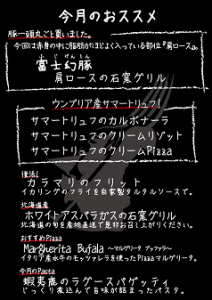 今月のおススメ
豚一頭丸ごと買いました。
今回は赤身の中に脂肪がほどよく入っている部位『肩ロース』。
ふじげんとん
富士幻豚
肩ロースの石窯グリル
ウンブリア産サマートリュフ!
サマートリュフのカルボナーラ
サマートリュフのクリームリゾット
サマートリュフのクリームPizza
カラマリのフリット
イカリングのフライを自家製タルタルソースで。
北海道産
ホワイトアスパラガスの石窯グリル
北海道の旬を産地直送で是非お召し上がりください。
おすすめPizza
Margherita Bufala 〜マルゲリータ ブッファラ〜
イタリア産水牛のモッツァレラを使ったPizzaマルゲリータ。
今月のPasta
蝦夷鹿のラグースパゲッティ
じっくり煮込んで旨味が詰まったパスタ。